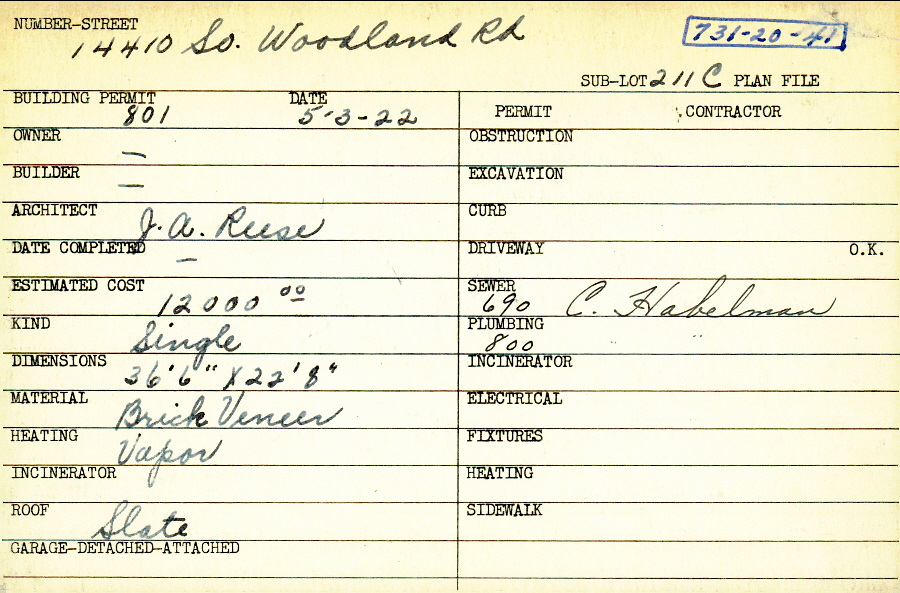 NUMBER-STREET
14410 So. Woodland Rd
731-20-41
SUB-LOT 211 C PLAN FILE
BUILDING PERMIT DATE
801 5-3-22
PERMIT CONTRACTOR
OWNER —
OBSTRUCTION
BUILDER —
EXCAVATION
ARCHITECT J. A. Reese
CURB
DATE COMPLETED —
DRIVEWAY O.K.
ESTIMATED COST 12000 00
SEWER 690 C. Habelman
KIND Single
PLUMBING 800 " "
DIMENSIONS 36'6" X 22'8"
INCINERATOR
MATERIAL Brick Veneer
ELECTRICAL
HEATING Vapor
FIXTURES
INCINERATOR
HEATING
ROOF Slate
SIDEWALK
GARAGE-DETACHED-ATTACHED